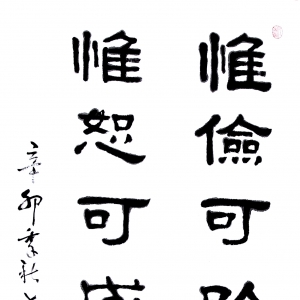 惟儉可
惟恕可
辛卯季秋